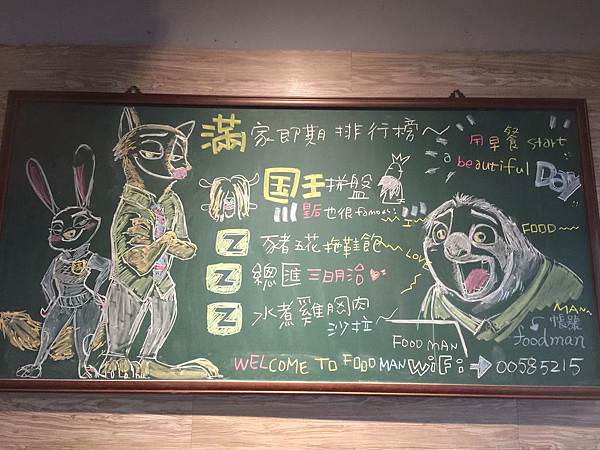 滿家即期排行榜~
用早餐 start
a beautiful Day
国王拼盤
皇后也很famous!
Z 豬五花拖鞋飽
Z 總匯三明治
Z 水煮雞胸肉
沙拉
I
LOVE
FOOD
MAN
FOOD MAN
帳號
foodman
WELCOME TO FOOD MAN WiFi → 00585215